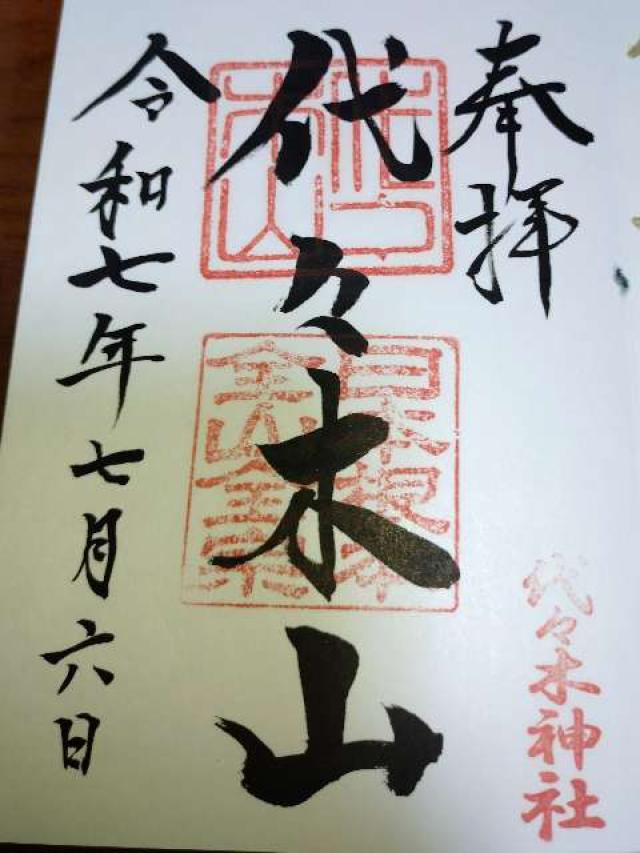 奉拝
代々木神社
代々木山
令和七年七月六日